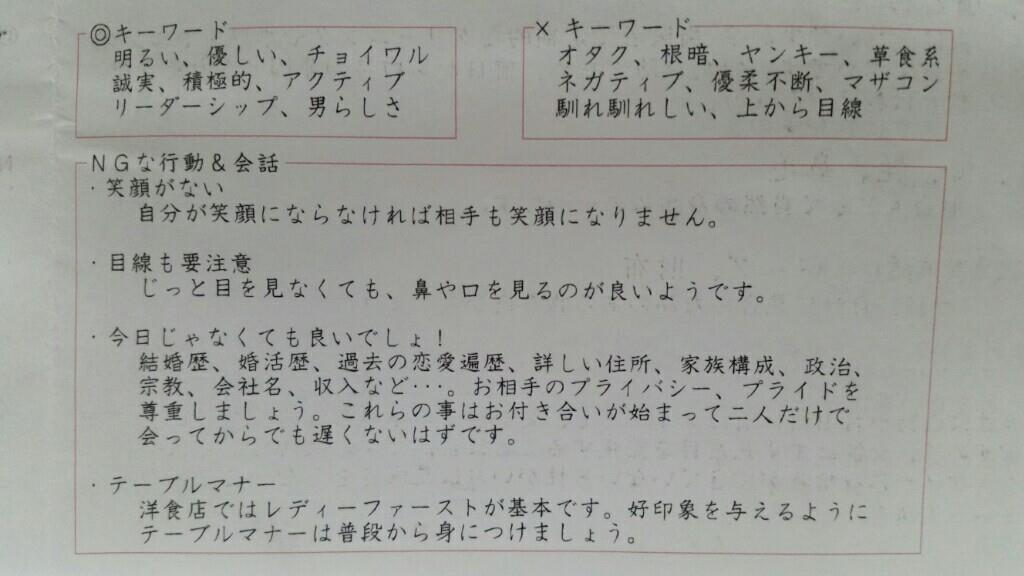 ◎キーワード
明るい、優しい、チョイワル
誠実、積極的、アクティブ
リーダーシップ、男らしさ
× キーワード
オタク、根暗、ヤンキー、草食系
ネガティブ、優柔不断、マザコン
馴れ馴れしい、上から目線
NGな行動&会話
・笑顔がない
自分が笑顔にならなければ相手も笑顔になりません。
・目線も要注意
じっと目を見なくても、鼻や口を見るのが良いようです。
・今日じゃなくても良いでしょ!
結婚歴、婚活歴、過去の恋愛遍歴、詳しい住所、家族構成、政治、
宗教、会社名、収入など・・・。お相手のプライバシー、プライドを
尊重しましょう。これらの事はお付き合いが始まって二人だけで
会ってからでも遅くないはずです。
・テーブルマナー
洋食店ではレディーファーストが基本です。好印象を与えるように
テーブルマナーは普段から身につけましょう。